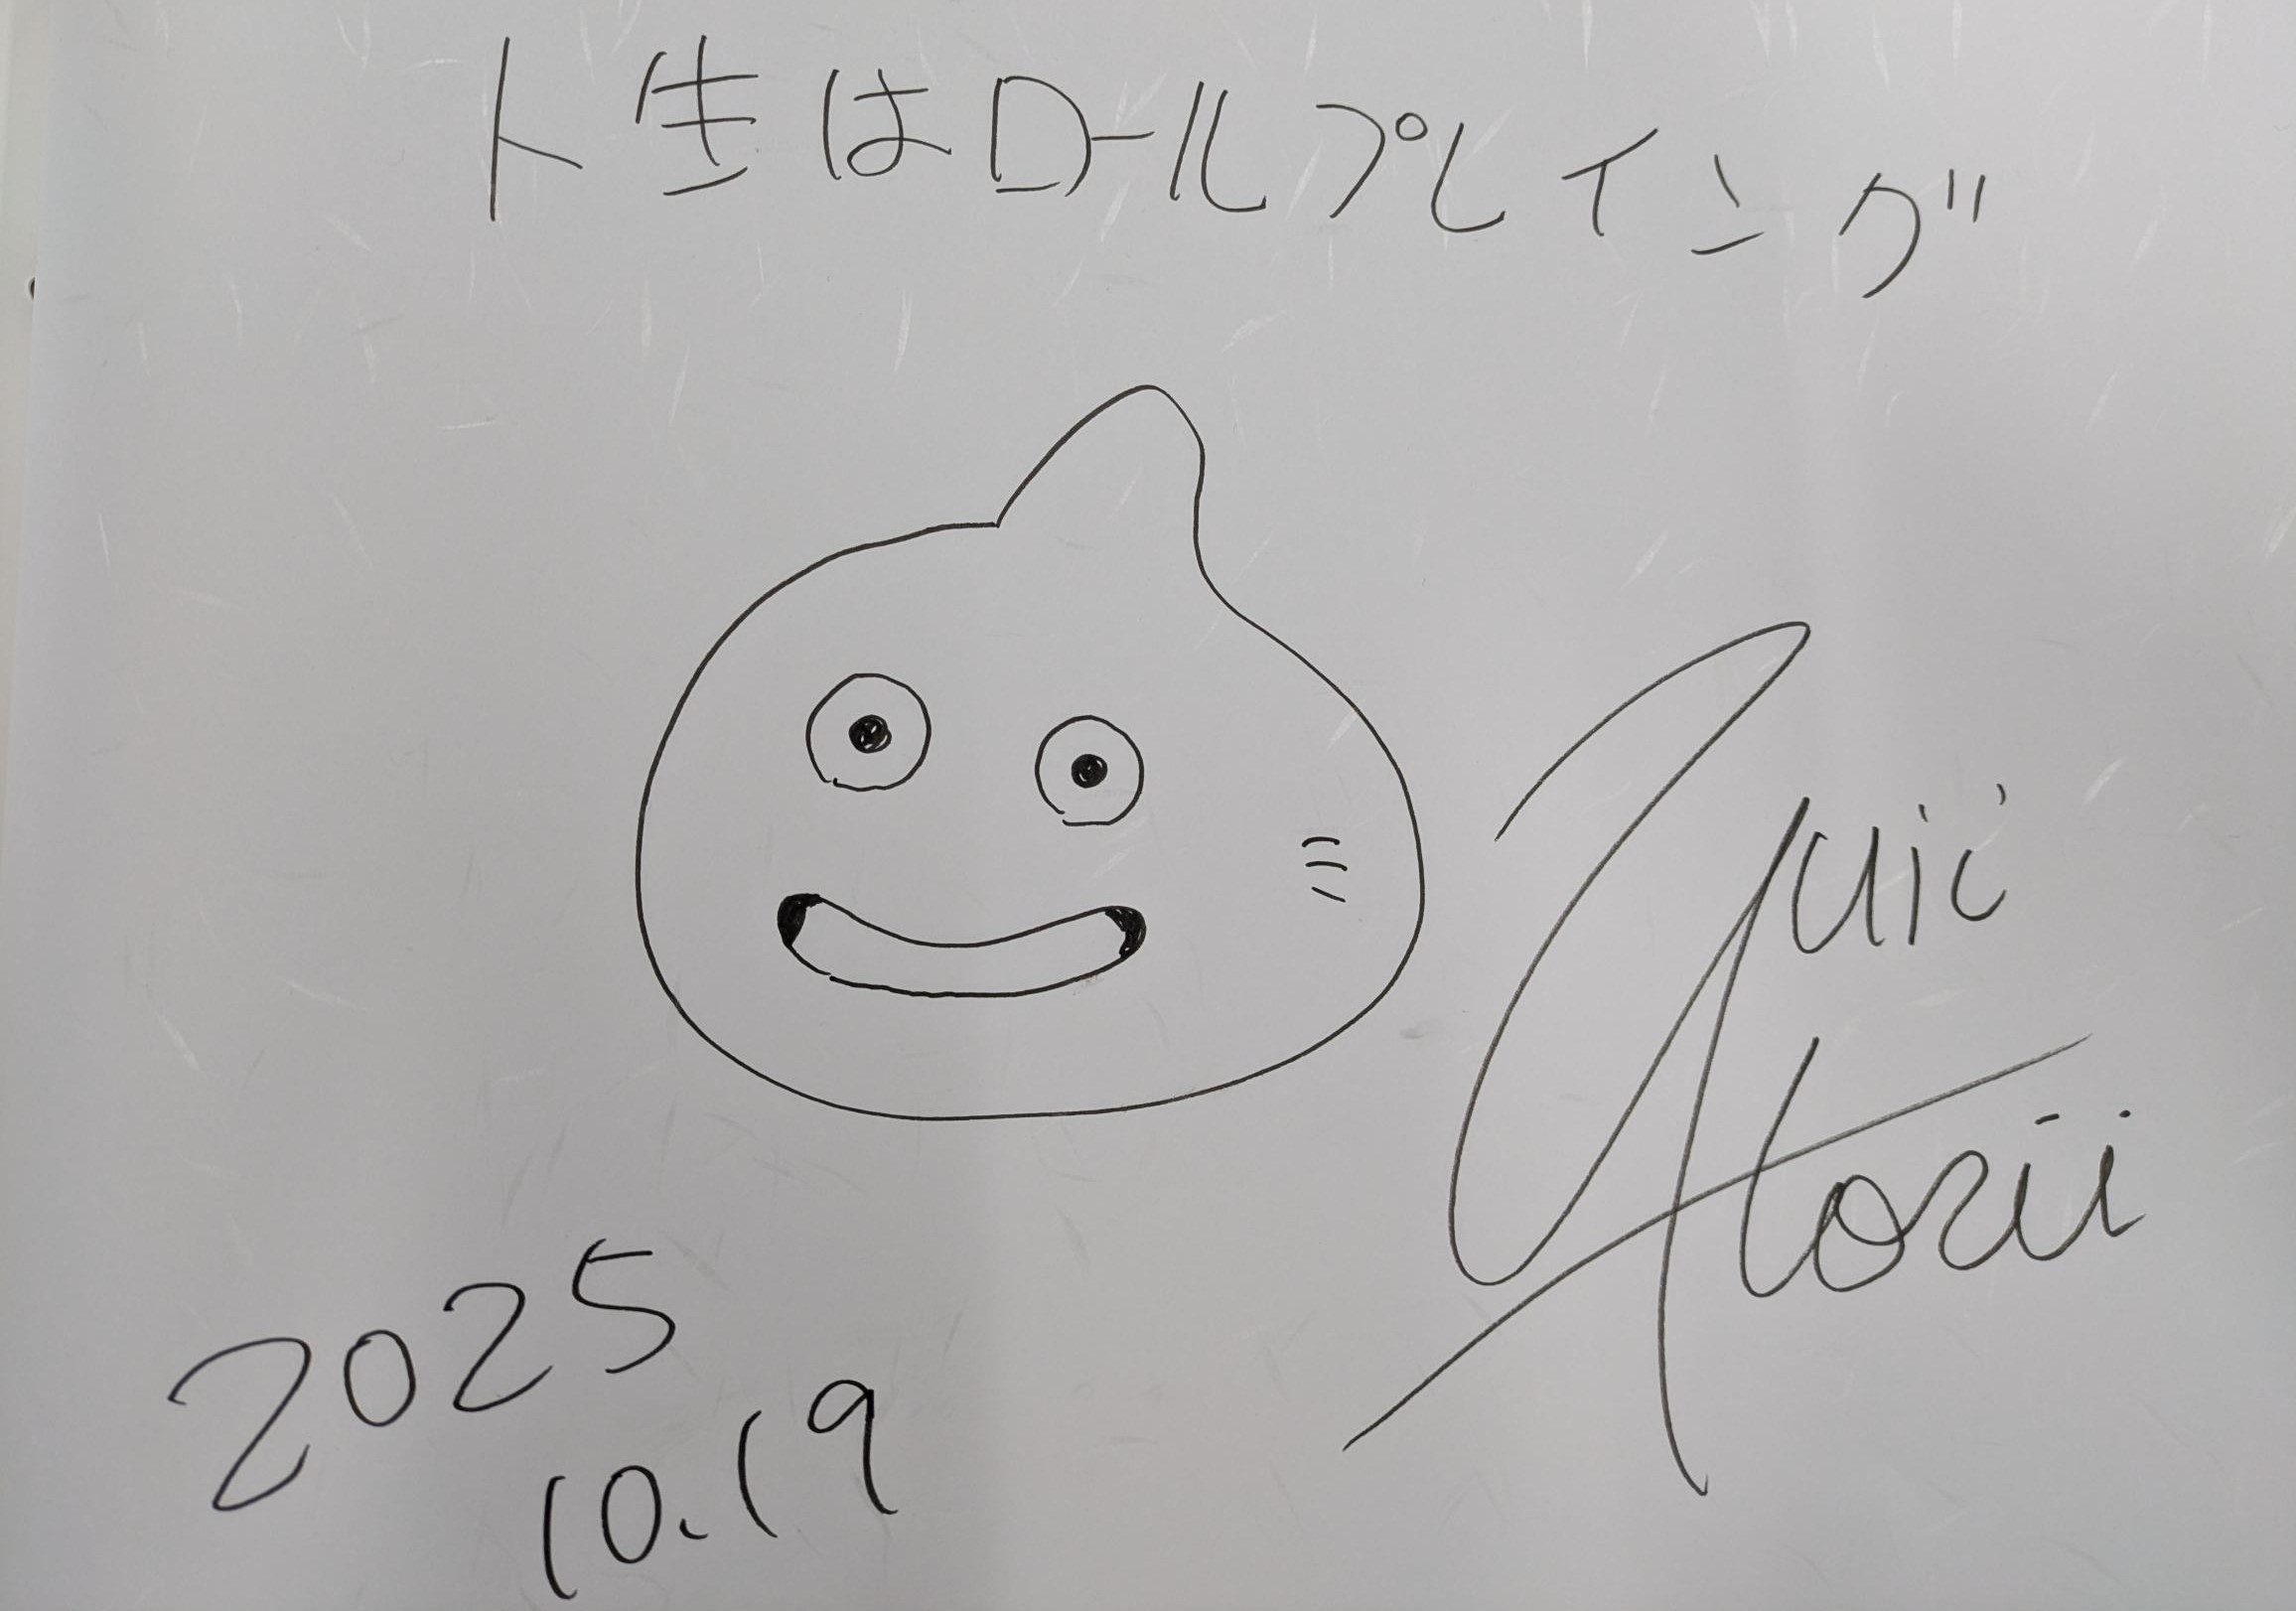 人生はロールプレイング
Yuji
Horii
2025
10.19